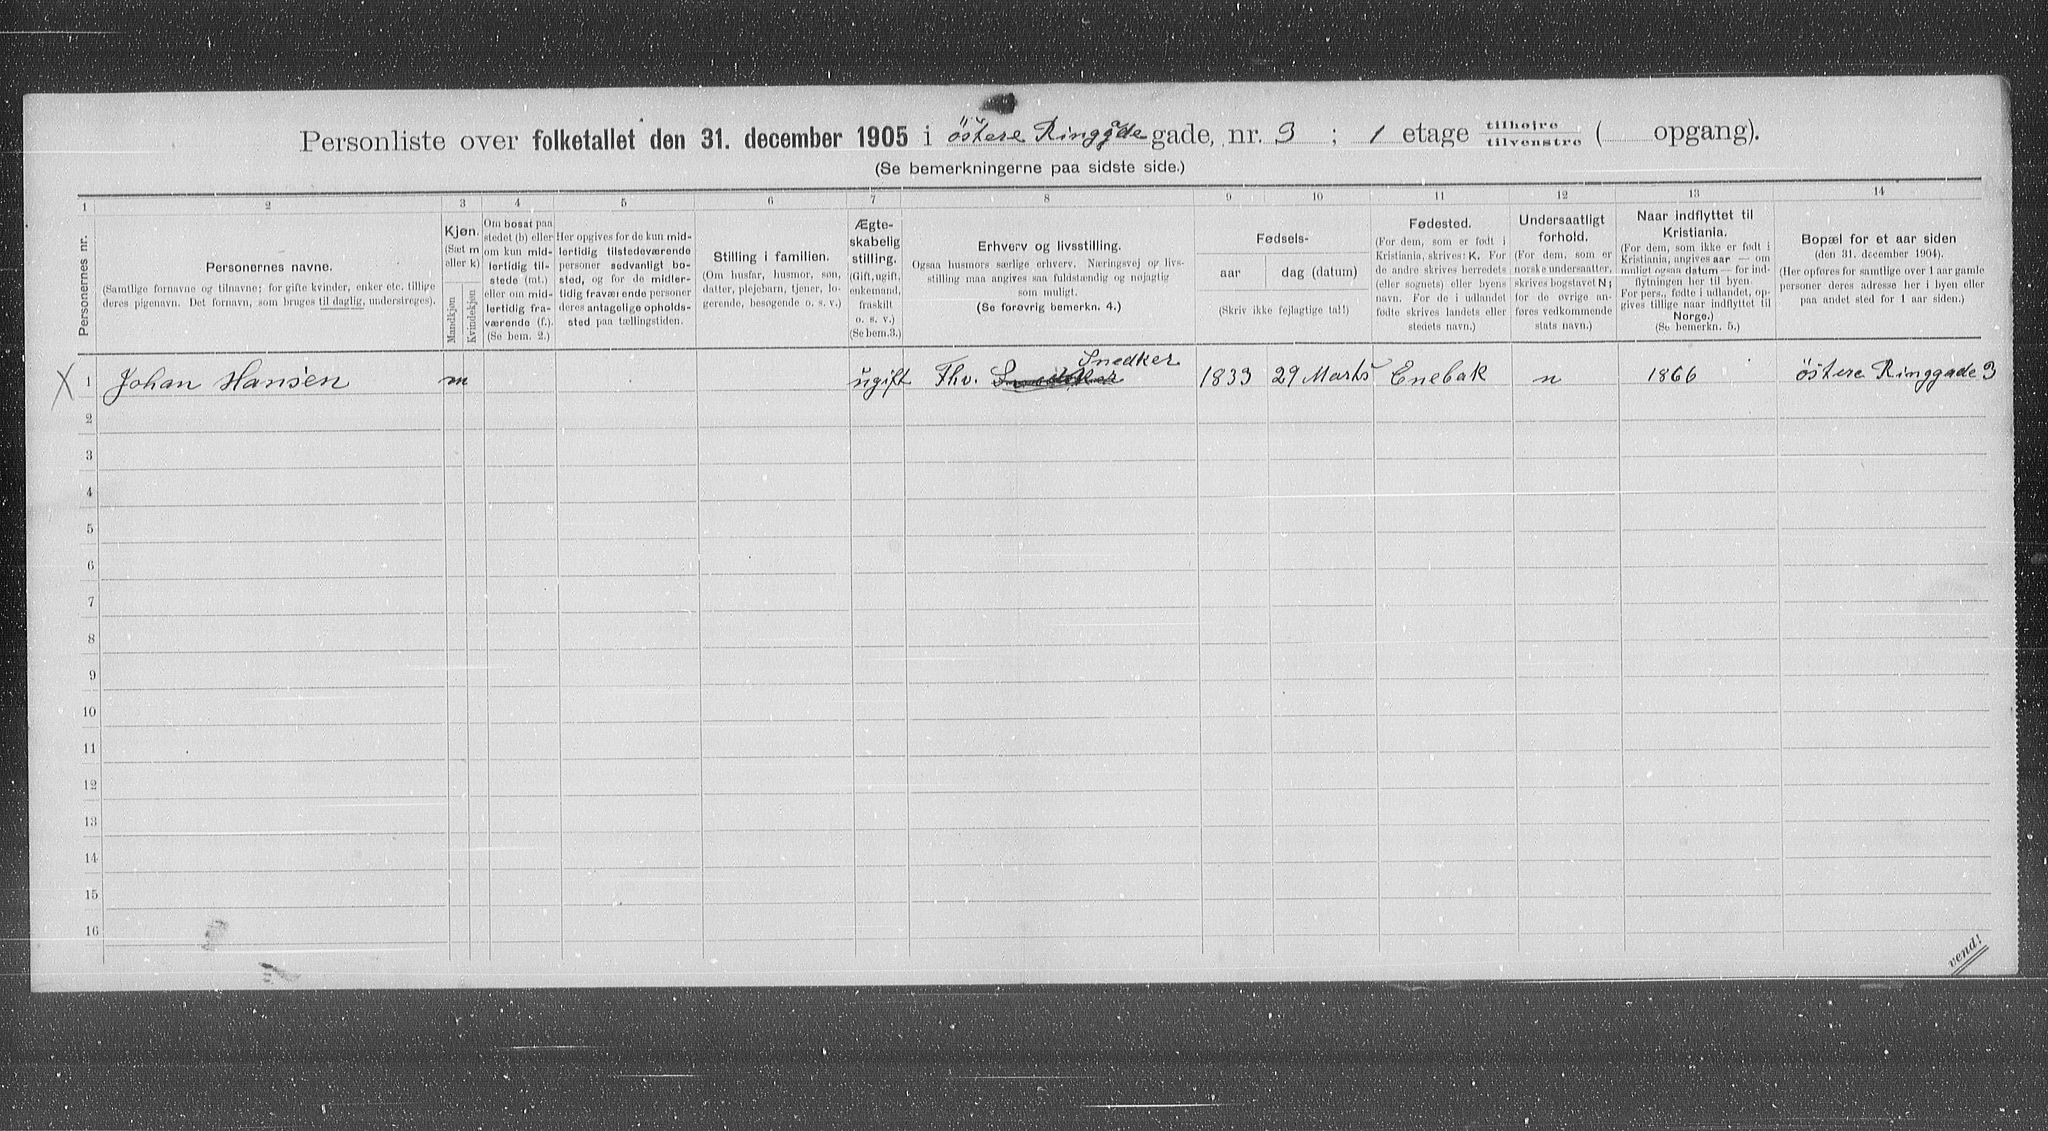 Personliste over folketallet den 31. december 1905 i östere Ringgade gade, nr. 3 ; 1 etage tilhøire / tilvenstre ( opgang).
(Se bemerkningerne paa sidste side.)
1 2 3 4 5 6 7 8 9 10 11 12 13 14
Personernes nr.
Personernes navne.
(Samtlige fornavne og tilnavne; for gifte kvinder, enker etc. tillige
deres pigenavn. Det fornavn, som bruges til daglig, understreges).
Kjøn.
(Sæt m
eller k)
Mandkjøn
Kvindekjøn
Om bosat paa
stedet (b) eller
om kun mid-
lertidig til-
stede (mt.)
eller om mid-
lertidig fra-
værende (f.).
(Se bem. 2.)
Her opgives for de kun mid-
lertidig tilstedeværende
personer sedvanligt bo-
sted, og for de midler-
tidig fraværende personer
deres antagelige opholds-
sted paa tællingstiden.
Stilling i familien.
(Om husfar, husmor, søn,
datter, plejebarn, tjener, lo-
gerende, besøgende o. s. v.)
Ægte-
skabelig
stilling.
(Gift, ugift,
enkemand,
fraskilt
o. s. v.)
(Se bem.3.)
Erhverv og livsstilling.
Ogsaa husmors særlige erhverv. Næringsvej og livs-
stilling maa angives saa fuldstændig og nøjagtig
som muligt.
(Se forøvrig bemerkn. 4.)
Fødsels-
aar
dag (datum)
(Skriv ikke fejlagtige tal!)
Fødested.
(For dem, som er født i
Kristiania, skrives: K. For
de andre skrives herredets
(eller sognets) eller byens
navn. For de i udlandet
fødte skrives landets eller
stedets navn.)
Undersaatligt
forhold.
(For dem, som er
norske undersaatter,
skrives bogstavet N;
for de øvrige an-
føres vedkommende
stats navn.)
Naar indflyttet til
Kristiania.
(For dem, som ikke er født i
Kristiania, angives aar — om
muligt ogsaa datum — for ind-
flytningen her til byen.
For pers., fødte i udlandet, op-
gives tillige naar indflyttet til
Norge.)
(Se bemerkn. 5.)
Bopæl for et aar siden
(den 31. december 1904).
(Her opføres for samtlige over 1 aar gamle
personer deres adresse her i byen eller
paa andet sted for 1 aar siden.)
X 1 Johan Hansen m ugift Fhv. Snedker 1833 29 Marts Enebak n 1866 östere Ringgade 3
2
3
4
5
6
7
8
9
10
11
12
13
14
15
16
vend!